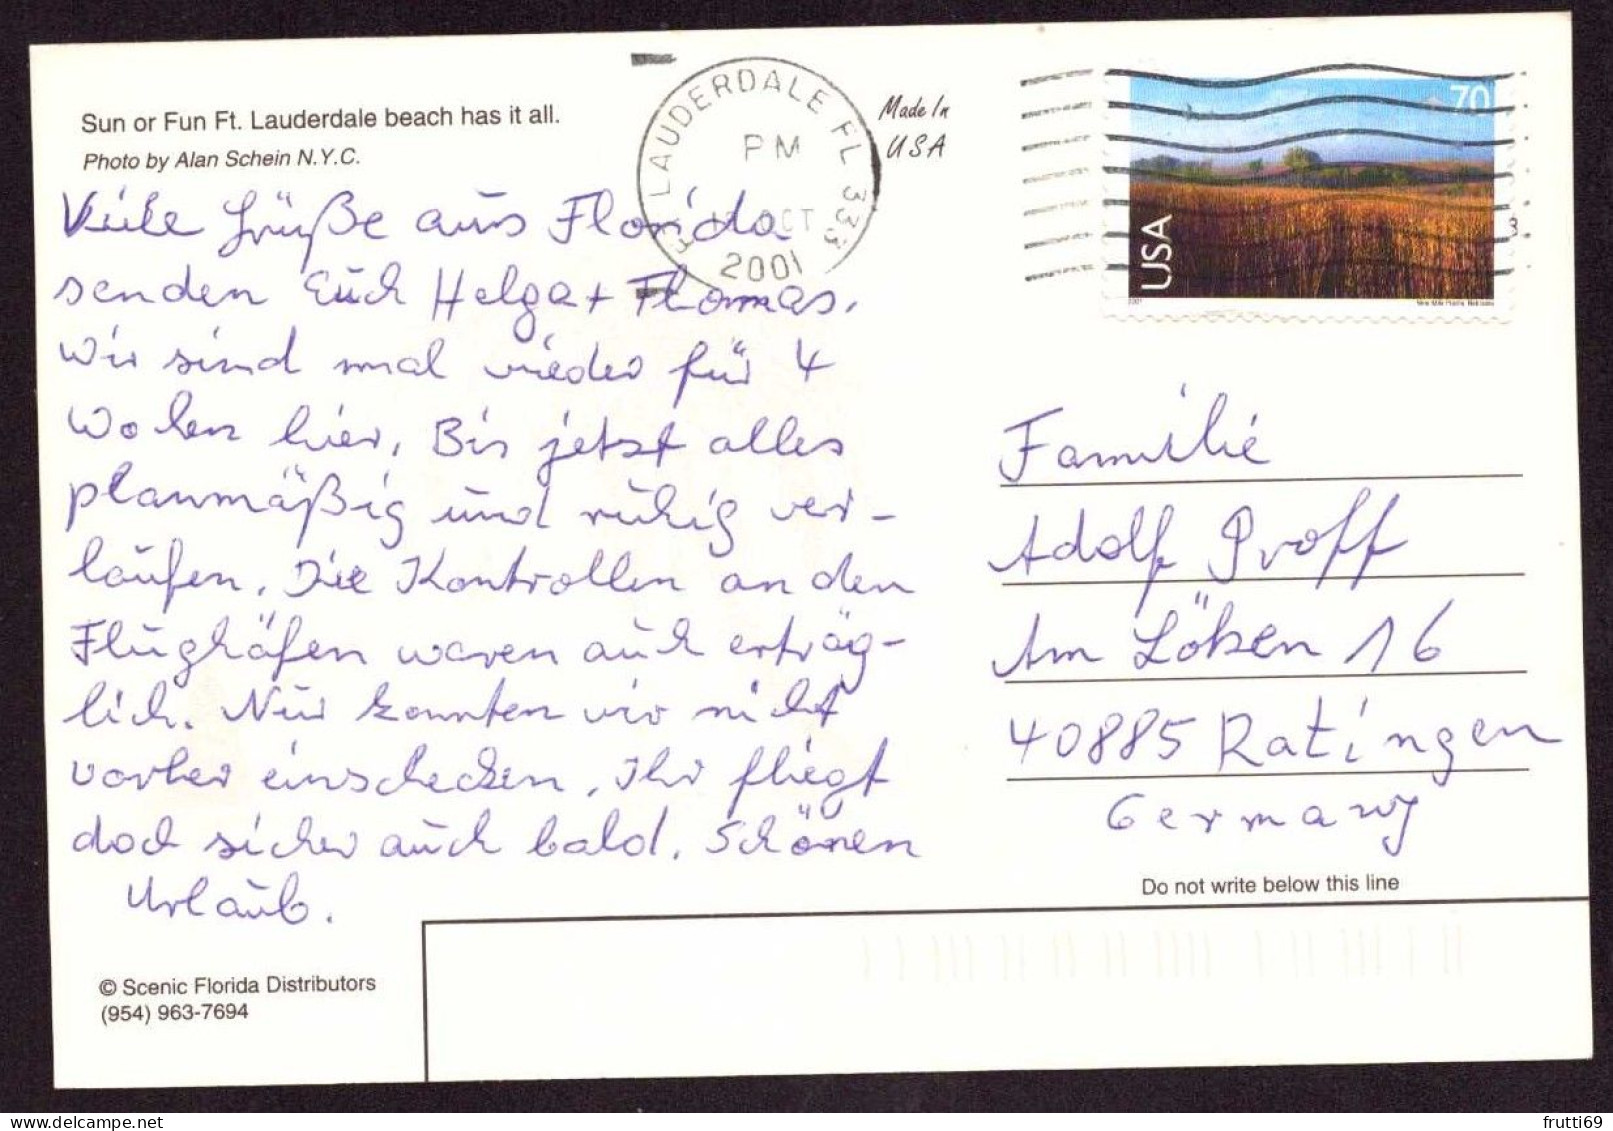 Sun or Fun Ft. Lauderdale beach has it all.
Photo by Alan Schein N.Y.C.
LAUDERDALE FL 333
PM
OCT
2001
Made In
USA
70
USA
2001
Nine-Mile Prairie, Nebraska
3
Viele Grüße aus Florida
senden Euch Helga + Thomas.
Wir sind mal wieder für 4
Wochen hier. Bis jetzt alles
planmäßig und ruhig ver-
laufen. Die Kontrollen an den
Flughäfen waren auch erträg-
lich. Nur konnten wir nicht
vorher einschecken. Ihr fliegt
doch sicher auch bald. Schönen
Urlaub.
Familie
Adolf Proff
Am Löken 16
40885 Ratingen
Germany
Do not write below this line
© Scenic Florida Distributors
(954) 963-7694
frutti69